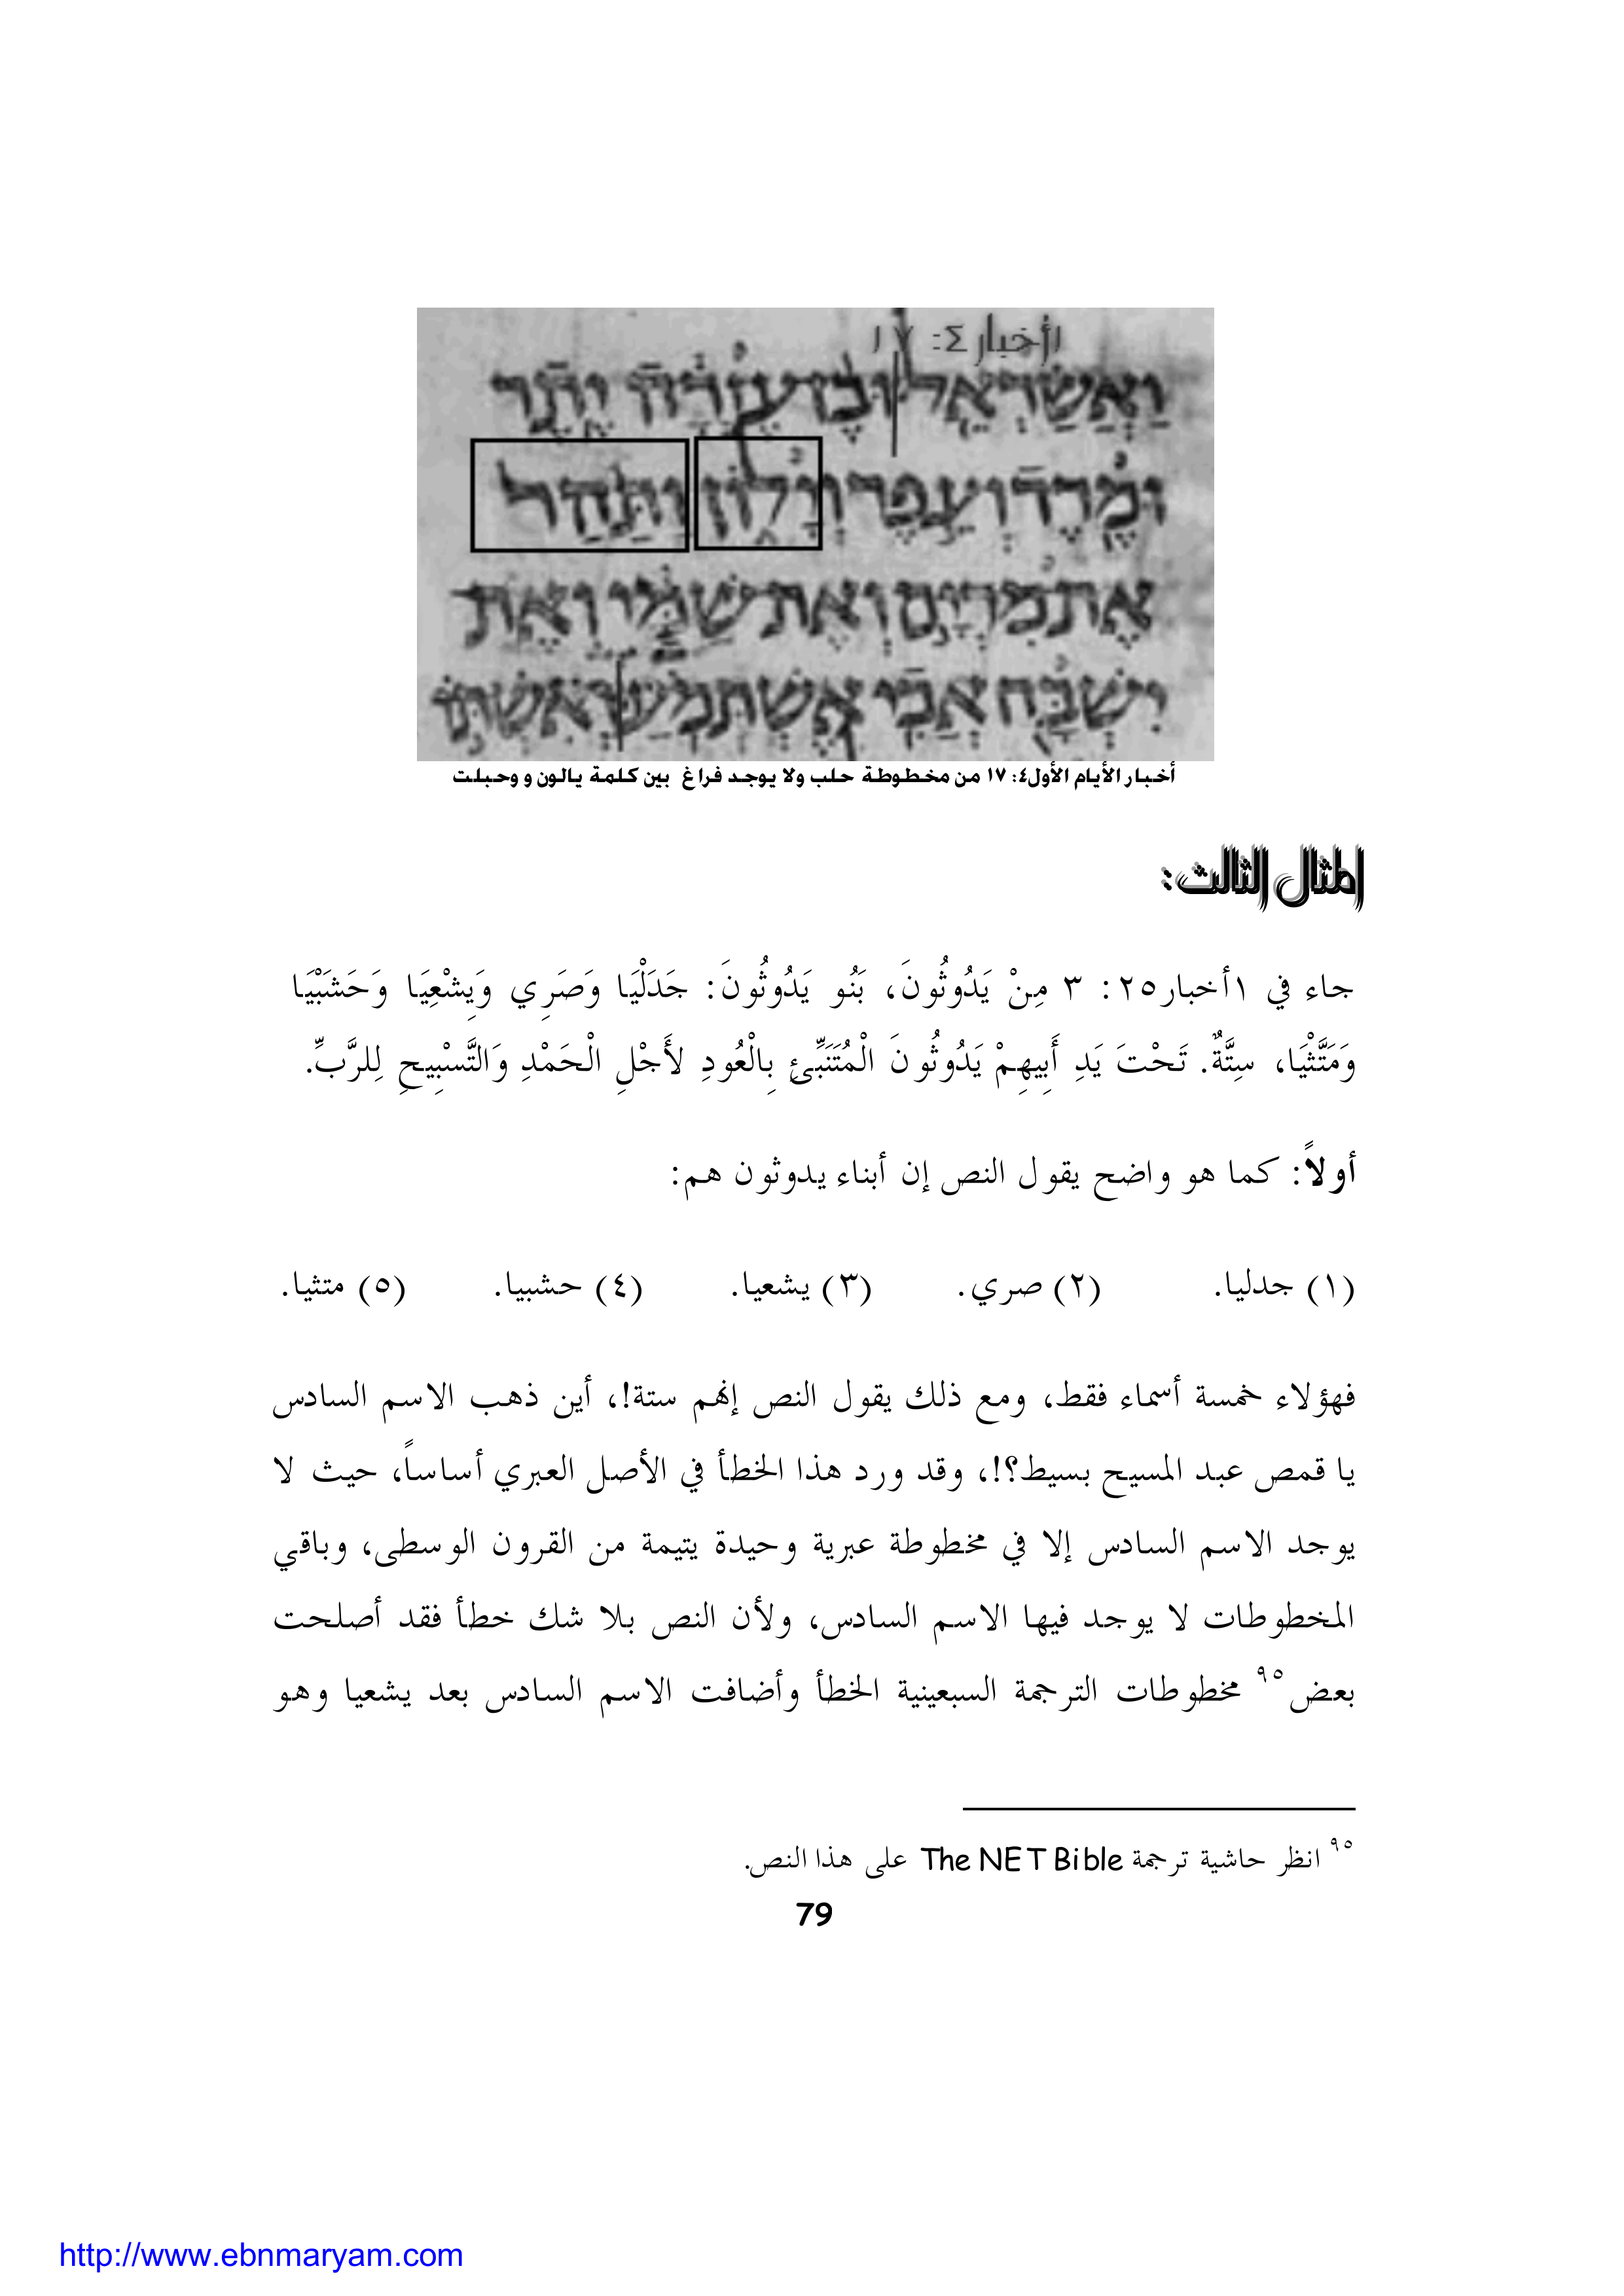 ١أخبار٤: ١٧
וַאֲשַׂרְאֵל וּבֶן עֶזְרָה יֶתֶר
וּמֶרֶד וְעֵפֶר וְיָלוֹן וַתַּהַר
אֶת מִרְיָם וְאֶת שַׁמַּי וְאֶת
יִשְׁבָּח אֲבִי אֶשְׁתְּמֹעַ וְאִשְׁתּוֹ
أخبار الأيام الأول٤: ١٧ من مخطوطة حلب ولا يوجد فراغ بين كلمة يالون و وحبلت
المثال الثالث:
جاء في ١أخبار٢٥: ٣ مِنْ يَدُوثُونَ، بَنُو يَدُوثُونَ: جَدَلْيَا وَصَرِي وَيِشْعِيَا وَحَشَبْيَا
وَمَتَّثْيَا، سِتَّةٌ. تَحْتَ يَدِ أَبِيهِمْ يَدُوثُونَ الْمُتَنَبِّئِ بِالْعُودِ لأَجْلِ الْحَمْدِ وَالتَّسْبِيحِ لِلرَّبِّ.
أولاً: كما هو واضح يقول النص إن أبناء يدوثون هم:
(١) جدليا. (٢) صري. (٣) يشعيا. (٤) حشبيا. (٥) متثيا.
فهؤلاء خمسة أسماء فقط، ومع ذلك يقول النص إنهم ستة!، أين ذهب الاسم السادس
يا قمص عبد المسيح بسيط؟!، وقد ورد هذا الخطأ في الأصل العبري أساساً، حيث لا
يوجد الاسم السادس إلا في مخطوطة عبرية وحيدة يتيمة من القرون الوسطى، وباقي
المخطوطات لا يوجد فيها الاسم السادس، ولأن النص بلا شك خطأ فقد أصلحت
بعض٩٥ مخطوطات الترجمة السبعينية الخطأ وأضافت الاسم السادس بعد يشعيا وهو
٩٥ انظر حاشية ترجمة The NET Bible على هذا النص.
79
http://www.ebnmaryam.com